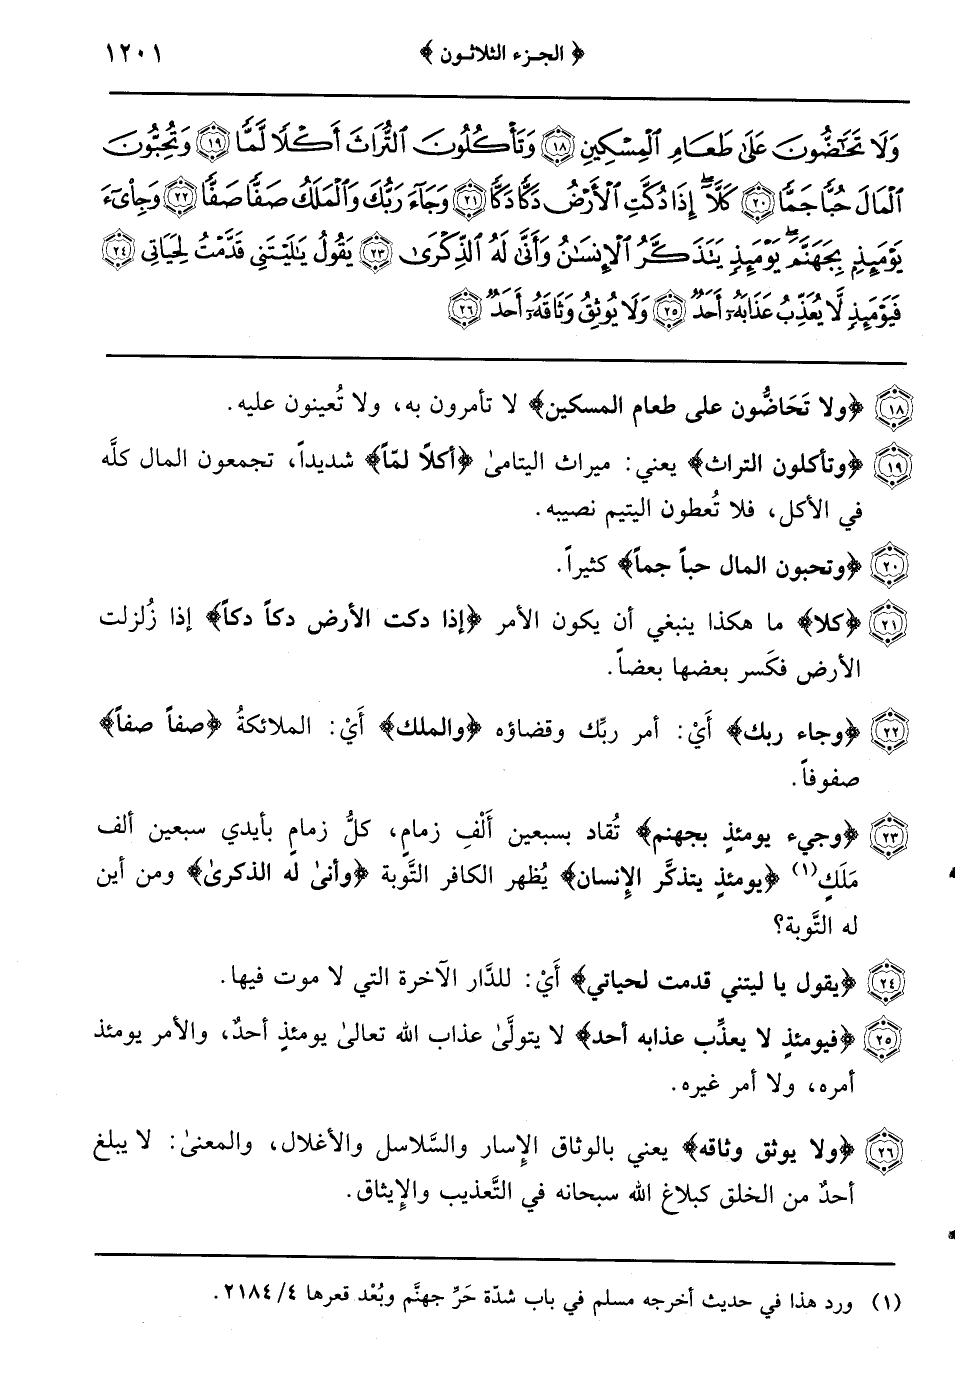 ﴿ الجزء الثلاثون ﴾ ١٢٠١
وَلَا تَحَٰٓضُّونَ عَلَىٰ طَعَامِ ٱلْمِسْكِينِ ١٨ وَتَأْكُلُونَ ٱلتُّرَاثَ أَكْلًا لَّمًّا ١٩ وَتُحِبُّونَ
ٱلْمَالَ حُبًّا جَمًّا ٢٠ كَلَّآ إِذَا دُكَّتِ ٱلْأَرْضُ دَكًّا دَكًّا ٢١ وَجَآءَ رَبُّكَ وَٱلْمَلَكُ صَفًّا صَفًّا ٢٢ وَجِا۟ىٓءَ
يَوْمَئِذٍۭ بِجَهَنَّمَ ۚ يَوْمَئِذٍ يَتَذَكَّرُ ٱلْإِنسَٰنُ وَأَنَّىٰ لَهُ ٱلذِّكْرَىٰ ٢٣ يَقُولُ يَٰلَيْتَنِى قَدَّمْتُ لِحَيَاتِى ٢٤
فَيَوْمَئِذٍ لَّا يُعَذِّبُ عَذَابَهُۥٓ أَحَدٌ ٢٥ وَلَا يُوثِقُ وَثَاقَهُۥٓ أَحَدٌ ٢٦
١٨ ﴿ولا تَحَاضُّون على طعام المسكين﴾ لا تأمرون به، ولا تُعينون عليه.
١٩ ﴿وتأكلون التراث﴾ يعني: ميراث اليتامىٰ ﴿أكلاً لمّاً﴾ شديداً، تجمعون المال كلَّه
في الأكل، فلا تُعطون اليتيم نصيبه.
٢٠ ﴿وتحبون المال حباً جماً﴾ كثيراً.
٢١ ﴿كلا﴾ ما هكذا ينبغي أن يكون الأمر ﴿إذا دكت الأرض دكاً دكاً﴾ إذا زُلزلت
الأرض فكَسر بعضها بعضاً.
٢٢ ﴿وجاء ربك﴾ أَيْ: أمر ربِّك وقضاؤه ﴿والملك﴾ أَيْ: الملائكةُ ﴿صفاً صفاً﴾
صفوفاً.
٢٣ ﴿وجيء يومئذٍ بجهنم﴾ تُقاد بسبعين أَلْفِ زمامٍ، كلُّ زمامٍ بأيدي سبعين ألف
مَلَكٍ(١) ﴿يومئذٍ يتذكَّر الإِنسان﴾ يُظهر الكافر التَّوبة ﴿وأنىٰ له الذكرىٰ﴾ ومن أين
له التَّوبة؟
٢٤ ﴿يقول يا ليتني قدمت لحياتي﴾ أَيْ: للدَّار الآخرة التي لا موت فيها.
٢٥ ﴿فيومئذٍ لا يعذِّب عذابه أحد﴾ لا يتولَّىٰ عذاب الله تعالىٰ يومئذٍ أحدٌ، والأمر يومئذ
أمره، ولا أمر غيره.
٢٦ ﴿ولا يوثق وثاقه﴾ يعني بالوثاق الإِسار والسَّلاسل والأغلال، والمعنىٰ: لا يبلغ
أحدٌ من الخلق كبلاغ الله سبحانه في التَّعذيب والإِيثاق.
(١) ورد هذا في حديث أخرجه مسلم في باب شدّة حَرِّ جهنَّم وبُعْد قعرها ٤/ ٢١٨٤.